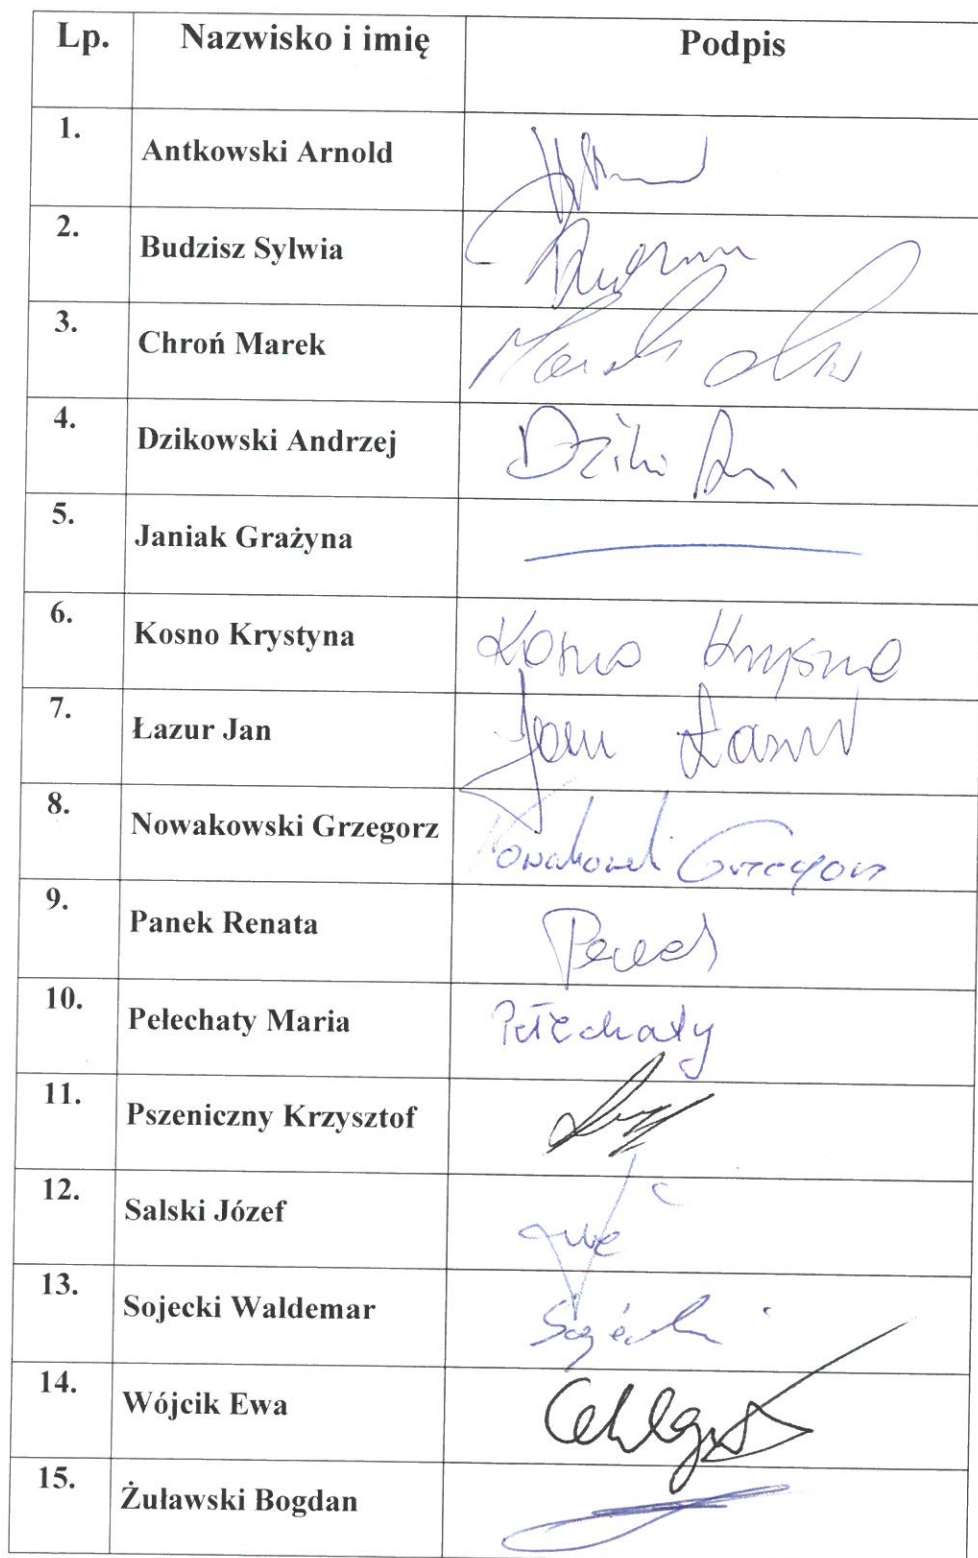 Lp. Nazwisko i imię Podpis
1. Antkowski Arnold
2. Budzisz Sylwia
3. Chroń Marek Marek
4. Dzikowski Andrzej
5. Janiak Grażyna
6. Kosno Krystyna Kosno Krystyna
7. Łazur Jan Jan Łazur
8. Nowakowski Grzegorz Nowakowski Grzegorz
9. Panek Renata Panek
10. Pełechaty Maria Pełechaty
11. Pszeniczny Krzysztof
12. Salski Józef
13. Sojecki Waldemar
14. Wójcik Ewa
15. Żuławski Bogdan